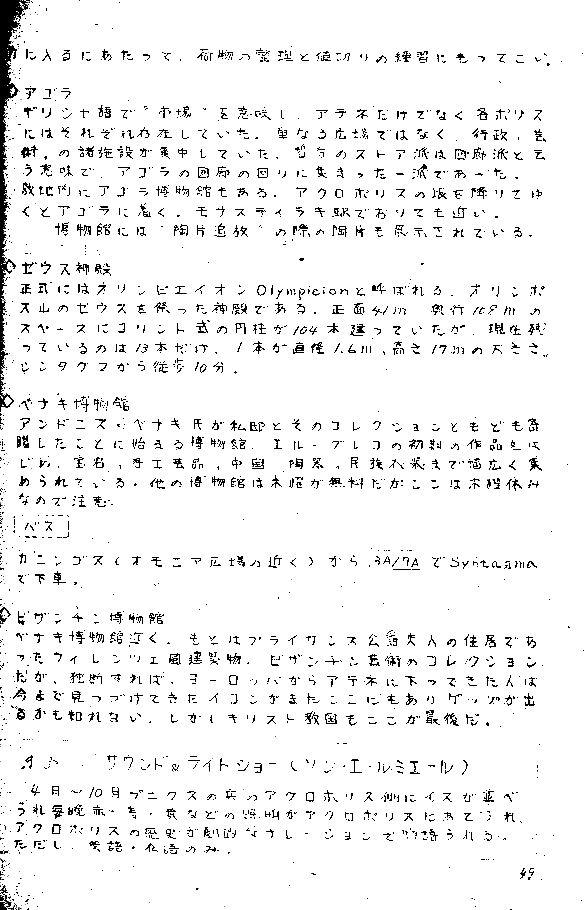 に入るにあたって、荷物の整理と値切りの練習にもってこい。
◇アゴラ
ギリシャ語で“市場”を意味し、アテネだけでなく各ポリス
にはそれぞれ存在していた。単なる広場ではなく、行政、芸
術、の諸施設が集中していた。哲学のストア派は回廊派と云
う意味で、アゴラの回廊の回りに集まった一派であった。
敷地内にアゴラ博物館もある。アクロポリスの坂を降りてゆ
くとアゴラに着く。モナスティラキ駅でおりても近い。
博物館には“陶片追放”の際の陶片も展示されている。
◇ゼウス神殿
正式にはオリンピエイオンOlympicionと呼ばれる。オリンポ
スルのゼウスを祭った神殿である。正面41m 奥行108mの
スペースにコリント式の円柱が104本建っていたが、現在残
っているのは13本だけ。1本が直径1.6m、高さ17mの大きさ。
シンタグマから徒歩10分。
◇ベナキ博物館
アンドニス・ベナキ氏が私邸とそのコレクションともども寄
贈したことに始まる博物館。エル・グレコの初期の作品をは
じめ、宝石、手工芸品、中国 陶器、民族衣装まで幅広く集
められている。他の博物館は木曜が無料だがここは木曜休み
なので注意。
バス
カニンゴス(オモニア広場の近く)から 3A/7A でSyntagma
で下車。
◇ビザンチン博物館
ベナキ博物館近く。もとはプライサンス公爵夫人の住居であ
ったフィレンツェ風建築物。ビザンチン芸術のコレクション
だが、独断すれば、ヨーロッパからアテネに下ってきた人は
今まで見つづけてきたイコンがまたここにもありゲップが出
るかも知れない。しかしキリスト教国もここが最後だ。
♬♪ サウンド&ライトショー(ソン・エ・ルミエール)
4月〜10月プニクスの丘のアクロポリス側にイスが並べ
られ毎晩赤・青・黄などの照明がアクロポリスにあてられ、
アクロポリスの歴史が劇的なナレーションで物語られる。
ただし、英語・仏語のみ。
49